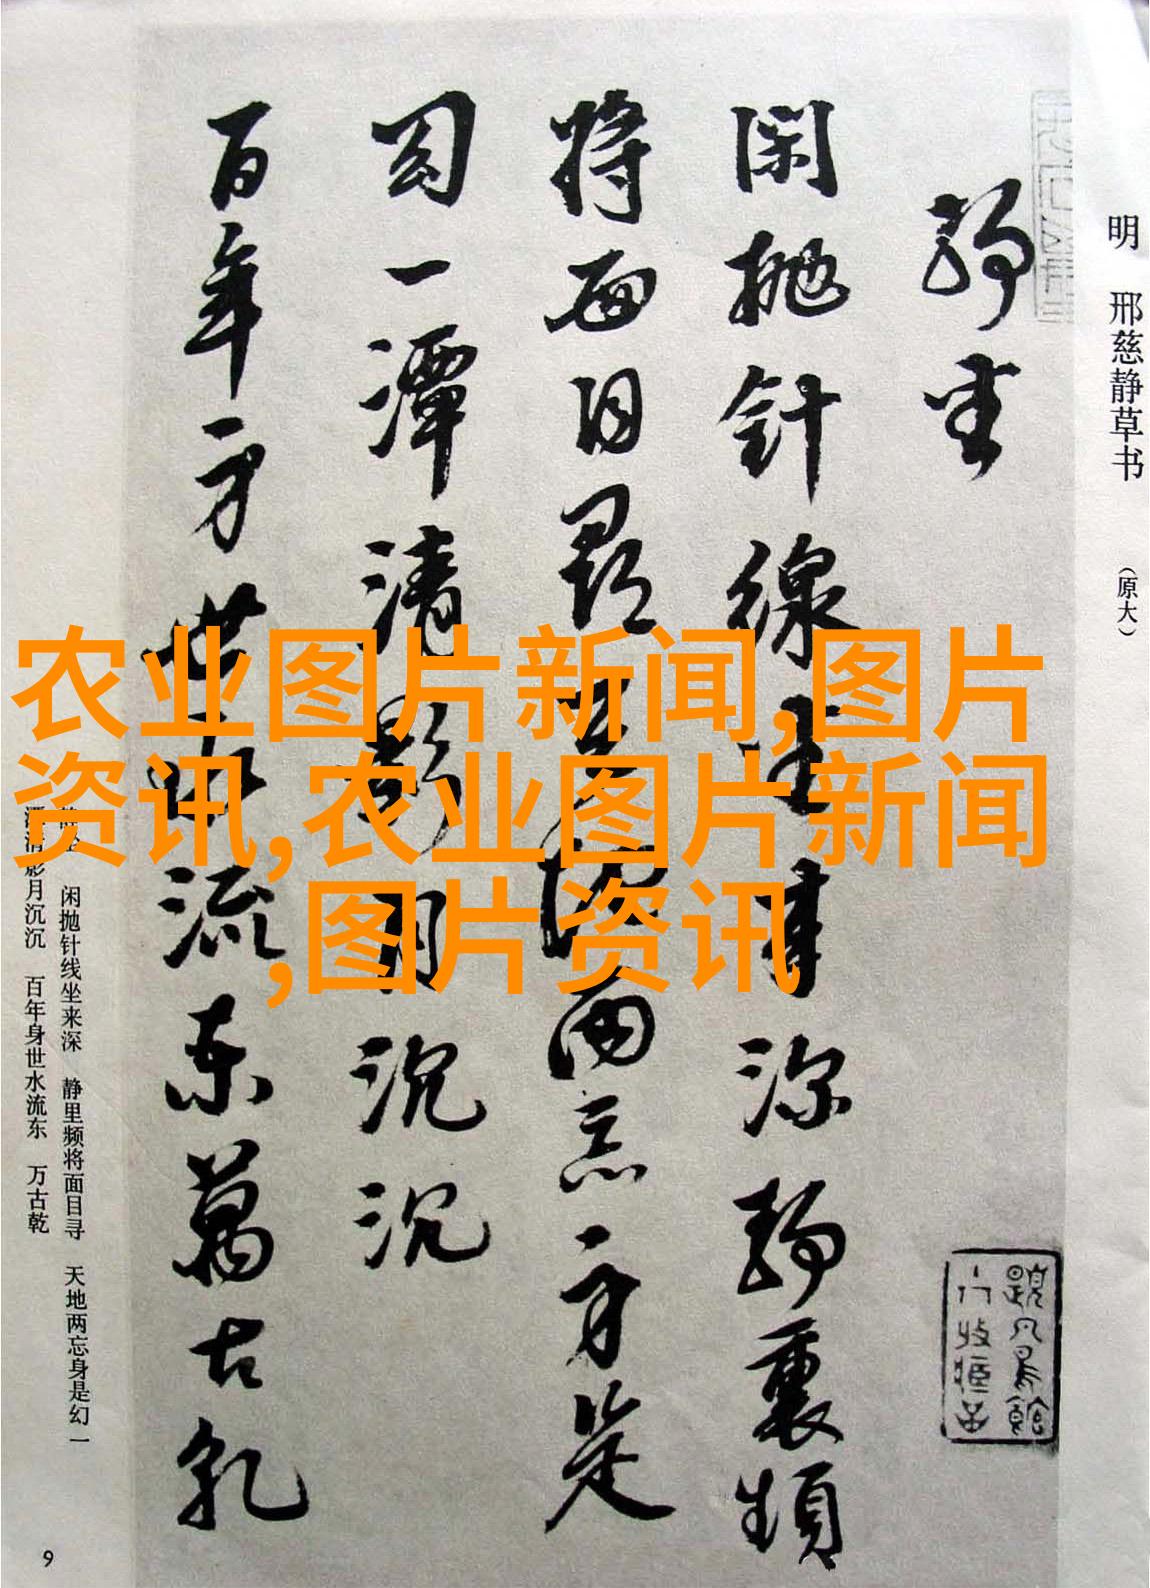 明 邢慈静草书 （原大）
静坐
闲抛针线坐来深静里频
将面目寻天地两忘身是
幻一潭清影月沉沉
百年身世水流东萬古乾
静坐 闲抛针线坐来深 静里频将面目寻 天地两忘身是幻 一
潭清影月沉沉 百年身世水流东 万古乾
9
农业图片新闻,图片
资讯,农业图片新闻
,图片资讯